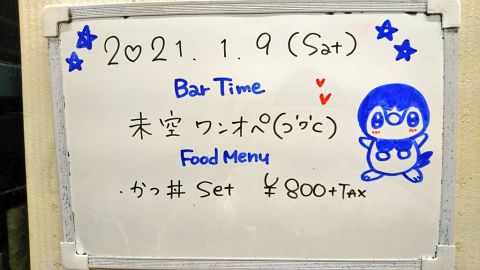 2♡21.1.9 (Sat)
Bar Time
未空 ワンオペ(っ'ヮ'c)
Food Menu
・かつ丼 Set ¥800+TAX